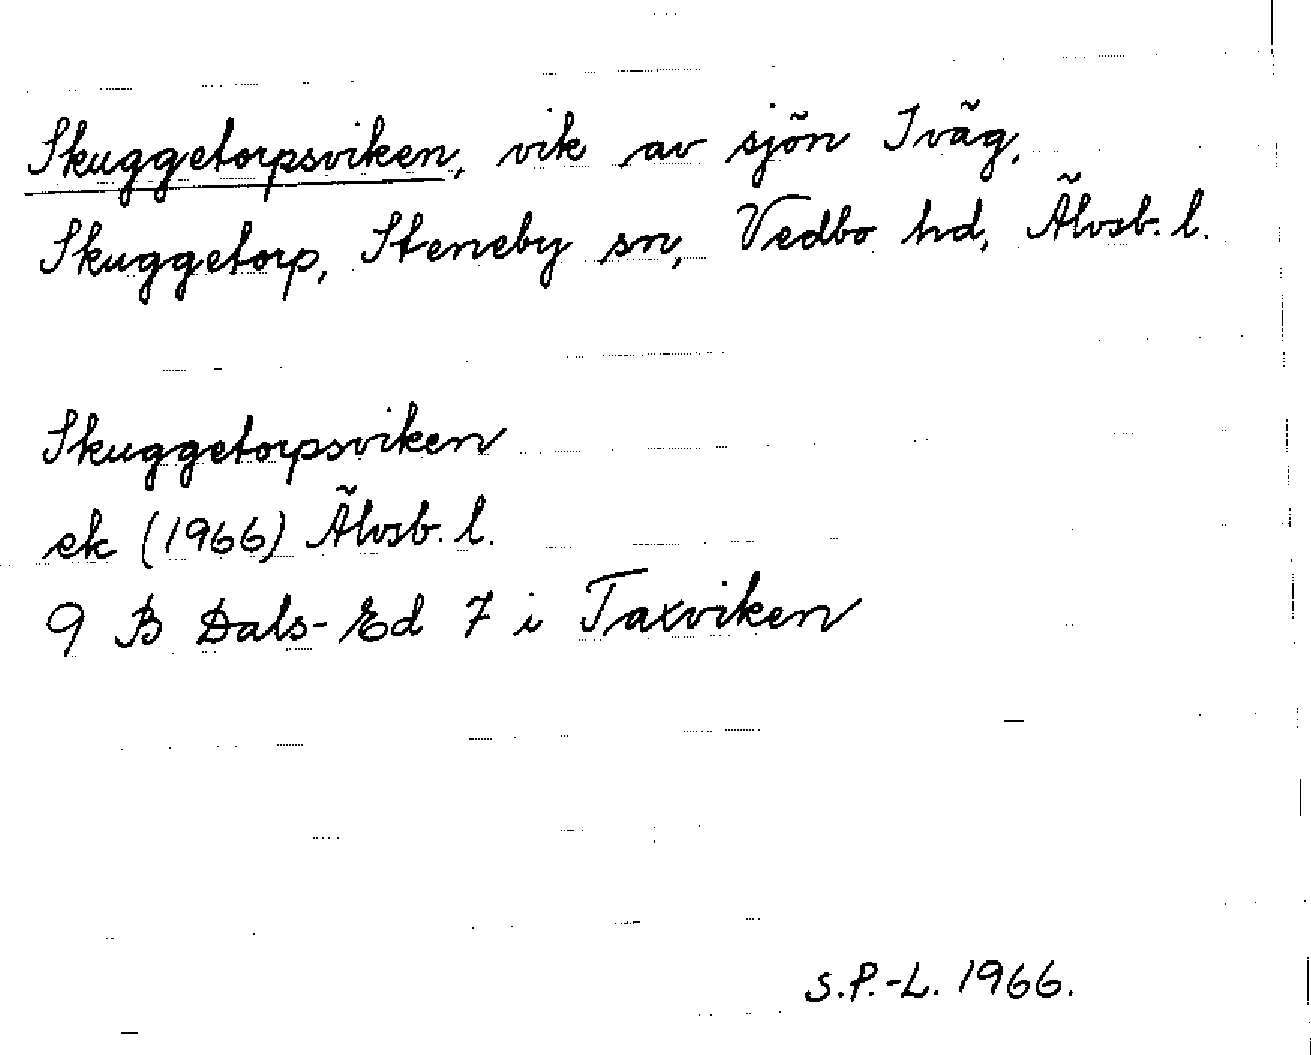 Skuggetorpsviken, vik av sjön Iväg,
Skuggetorp, Steneby sn, Vedbo hd, Älvsb. l.
Skuggetorpsviken
ek (1966) Älvsb. l.
9 B Dals-Ed 7 i Taxviken
S.P.-L. 1966.